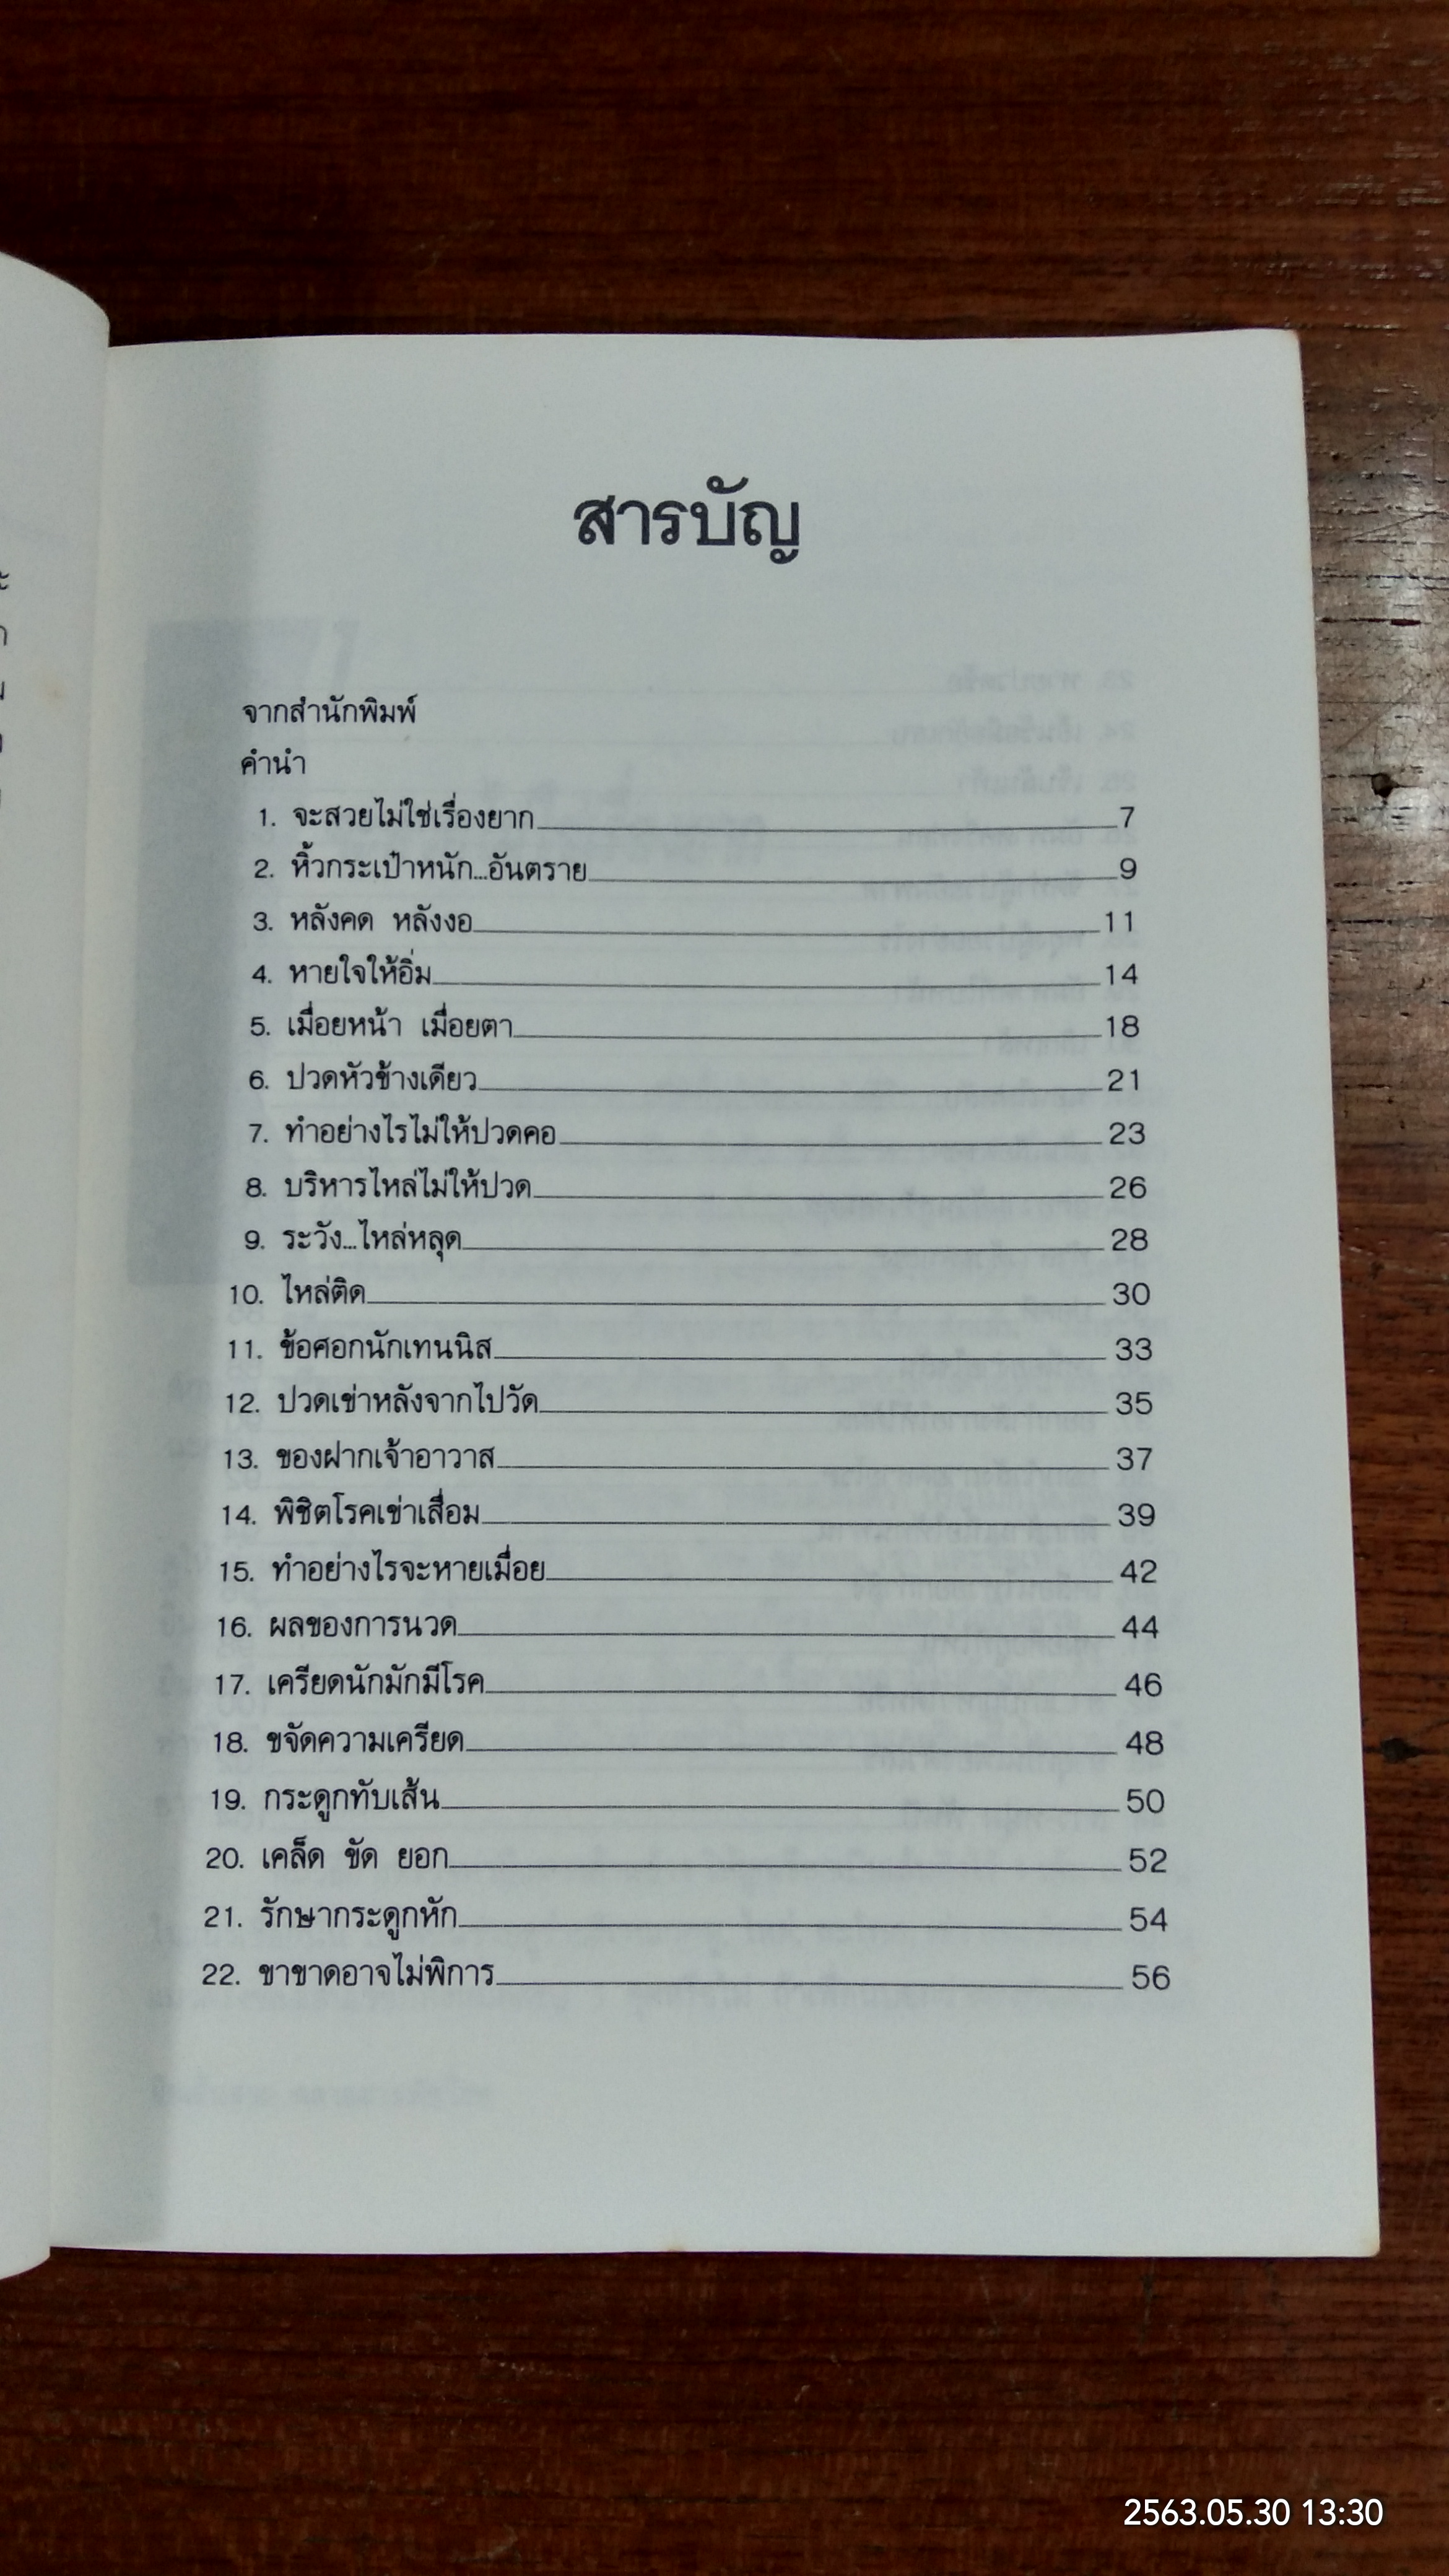 สารบัญ
จากสำนักพิมพ์
คำนำ
1. จะสวยไม่ใช่เรื่องยาก 7
2. หิ้วกระเป๋าหนัก...อันตราย 9
3. หลังคด หลังงอ 11
4. หายใจให้อิ่ม 14
5. เมื่อยหน้า เมื่อยตา 18
6. ปวดหัวข้างเดียว 21
7. ทำอย่างไรไม่ให้ปวดคอ 23
8. บริหารไหล่ไม่ให้ปวด 26
9. ระวัง...ไหล่หลุด 28
10. ไหล่ติด 30
11. ข้อศอกนักเทนนิส 33
12. ปวดเข่าหลังจากไปวัด 35
13. ของฝากเจ้าอาวาส 37
14. พิชิตโรคเข่าเสื่อม 39
15. ทำอย่างไรจะหายเมื่อย 42
16. ผลของการนวด 44
17. เครียดนักมักมีโรค 46
18. ขจัดความเครียด 48
19. กระดูกทับเส้น 50
20. เคล็ด ขัด ยอก 52
21. รักษากระดูกหัก 54
22. ขาขาดอาจไม่พิการ 56
2563.05.30 13:30